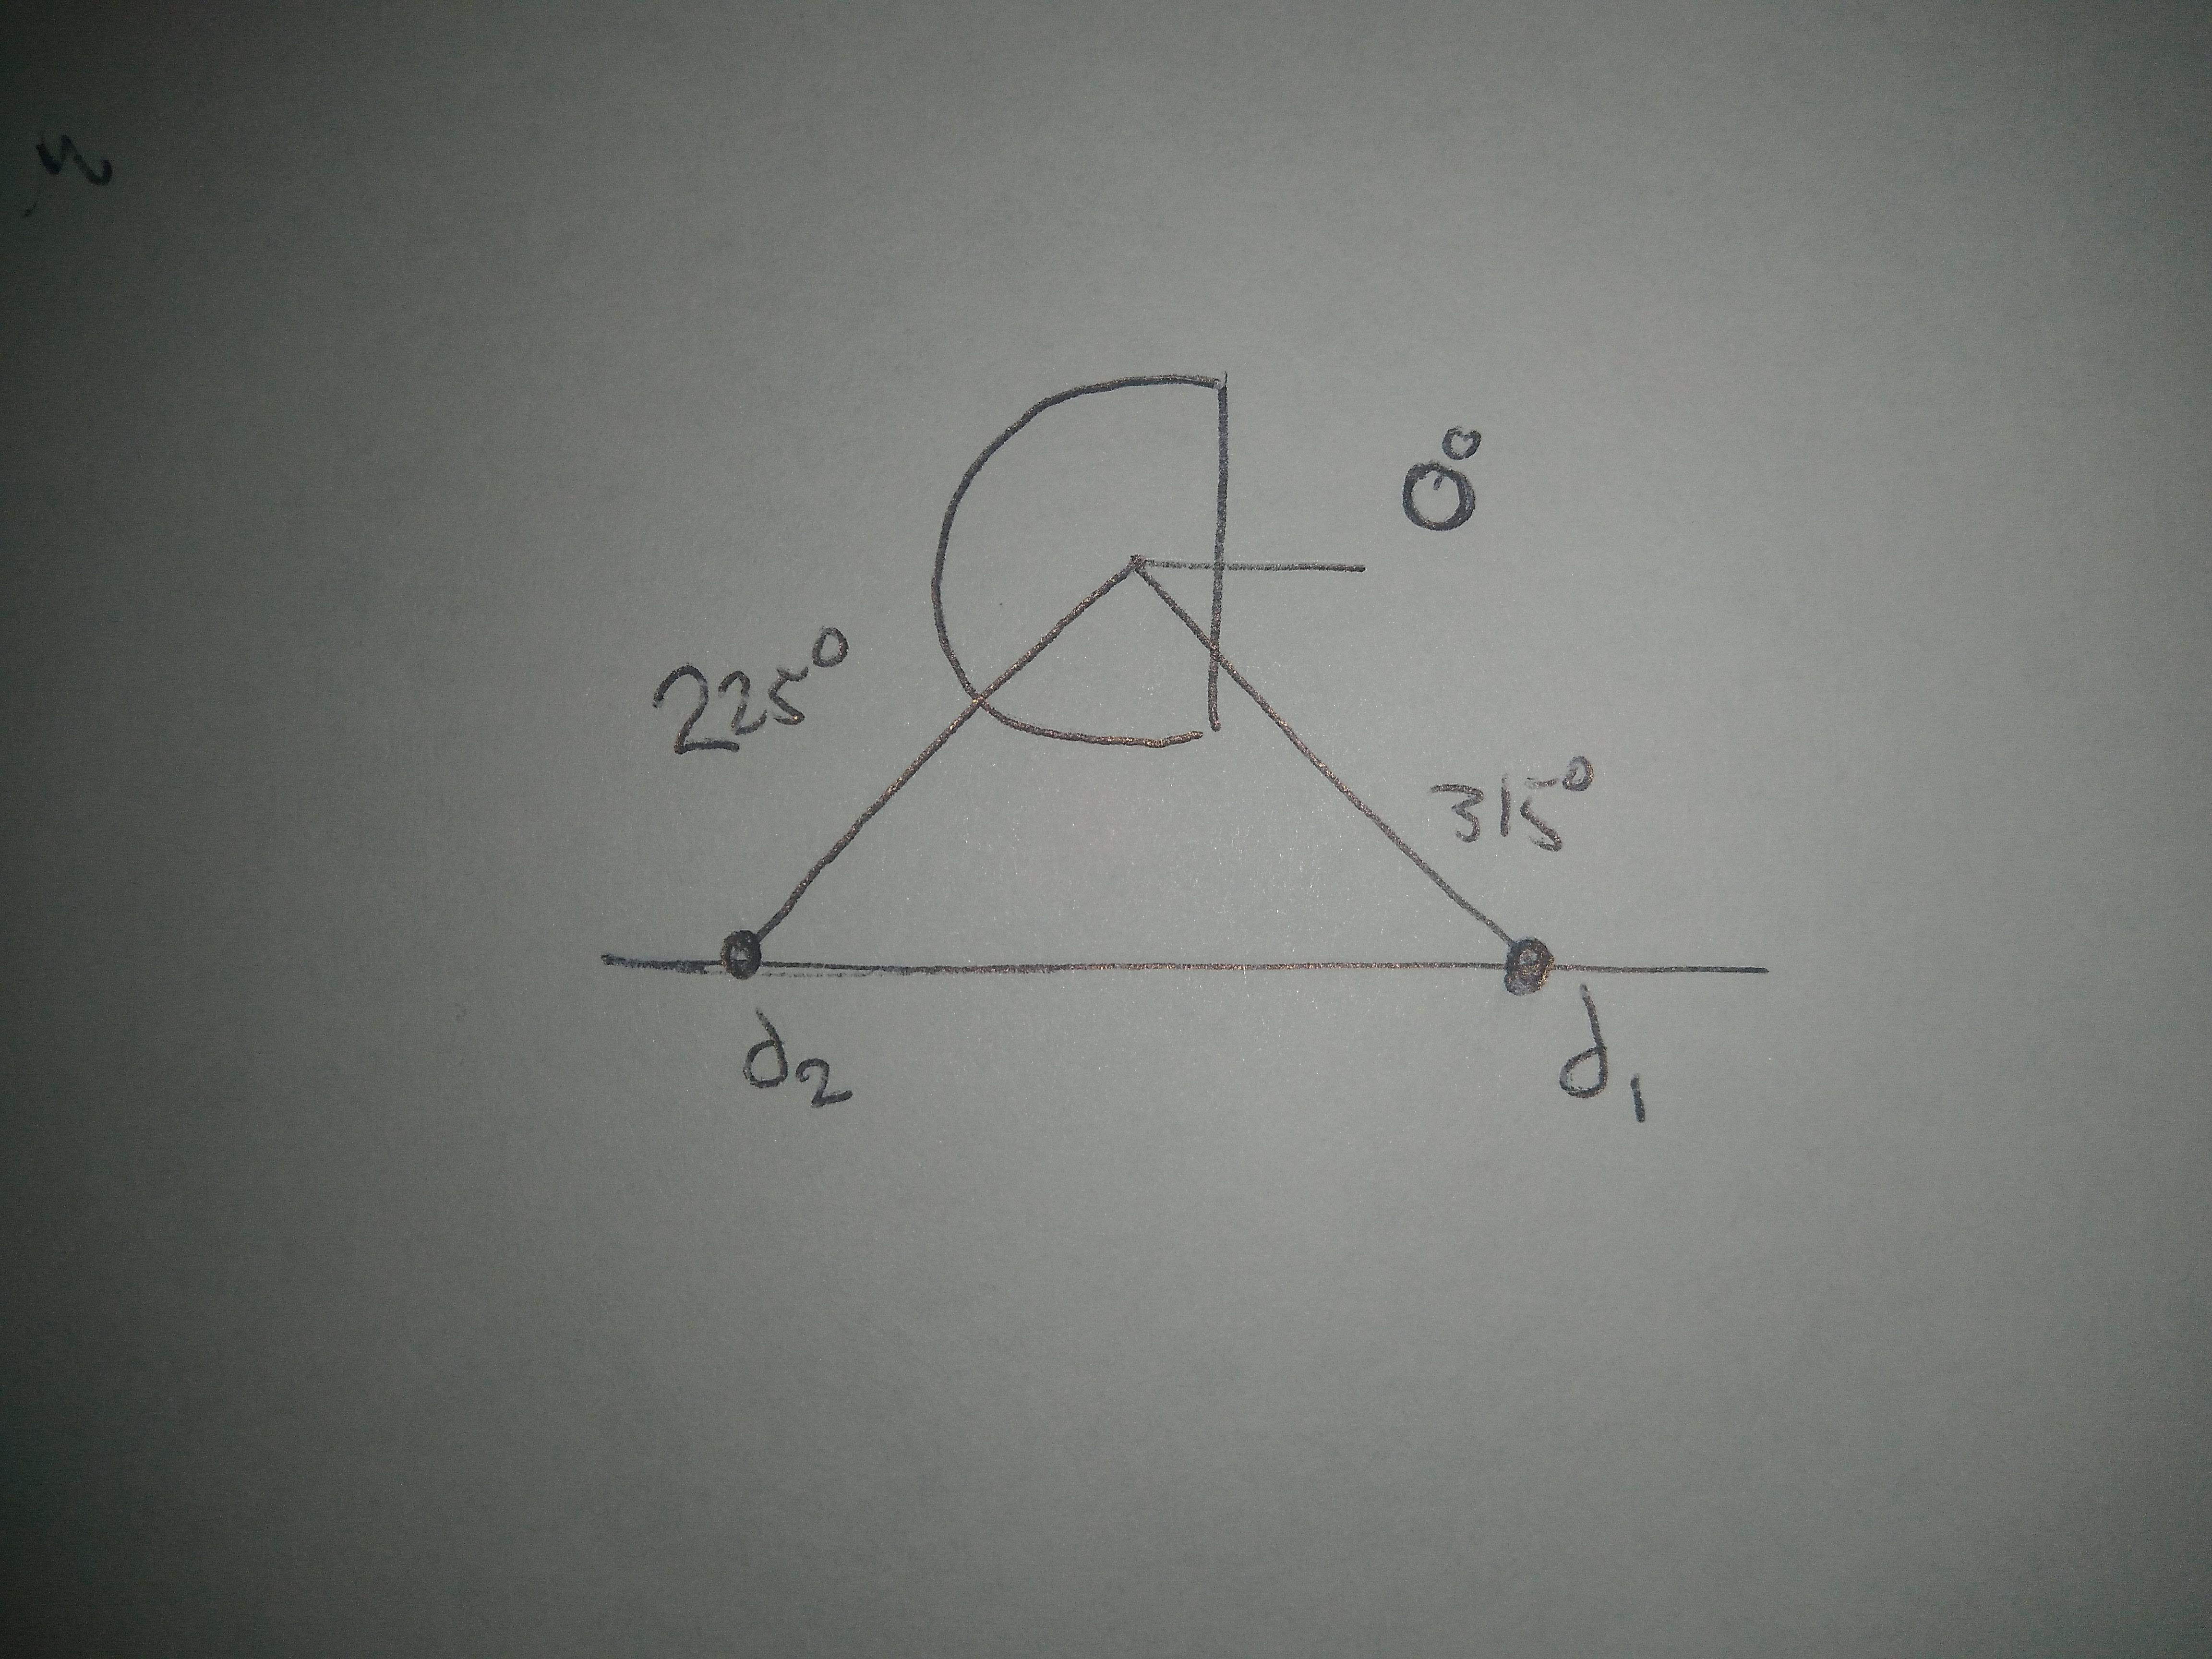 0°
225°
315°
d2
d1